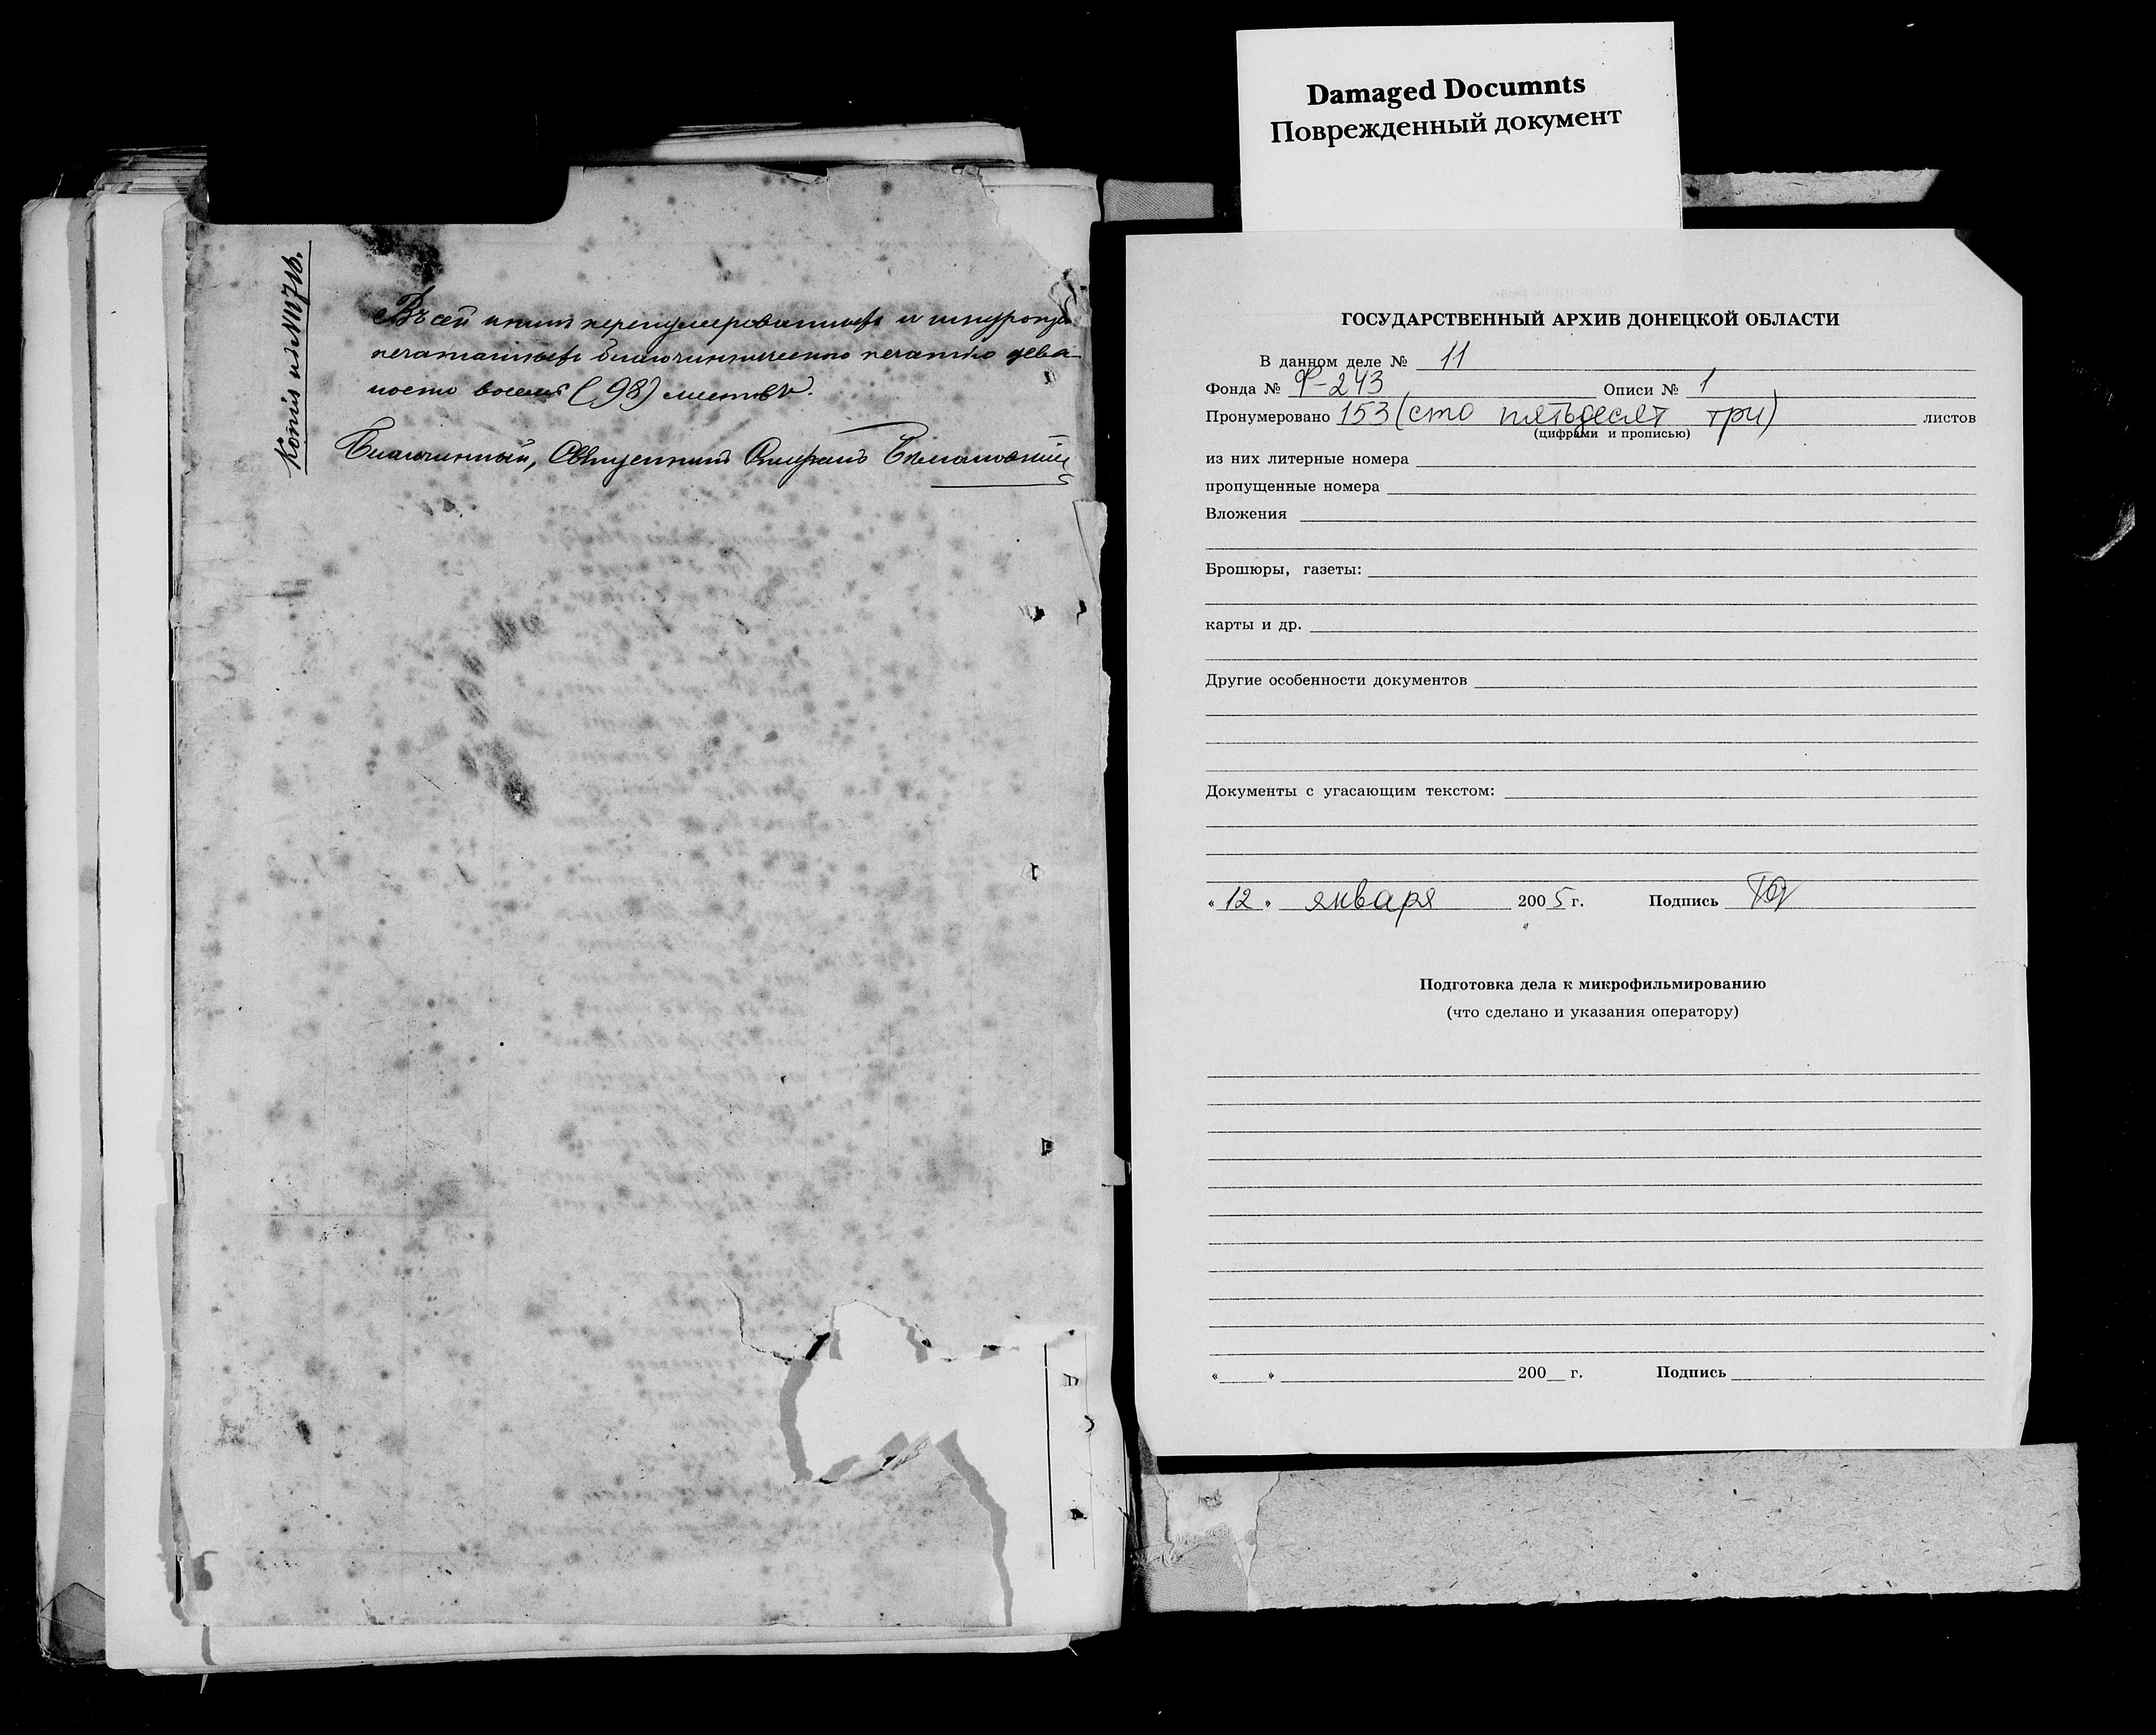 Въ сей книгѣ перенумерованныхъ и шнурокъ
печатанныхъ благочинническою печатью девя-
носто восемь (98) листовъ.
Благочинный, Священникъ
Копія
Damaged Documnts
Поврежденный документ
ГОСУДАРСТВЕННЫЙ АРХИВ ДОНЕЦКОЙ ОБЛАСТИ
В данном деле № 11
Фонда № Ф-243 Описи № 1
Пронумеровано 153 (сто пятьдесят три) листов
(цифрами и прописью)
из них литерные номера
пропущенные номера
Вложения
Брошюры, газеты:
карты и др.
Другие особенности документов
Документы с угасающим текстом:
« 12 » января 2005 г. Подпись
Подготовка дела к микрофильмированию
(что сделано и указания оператору)
« » 200 г. Подпись